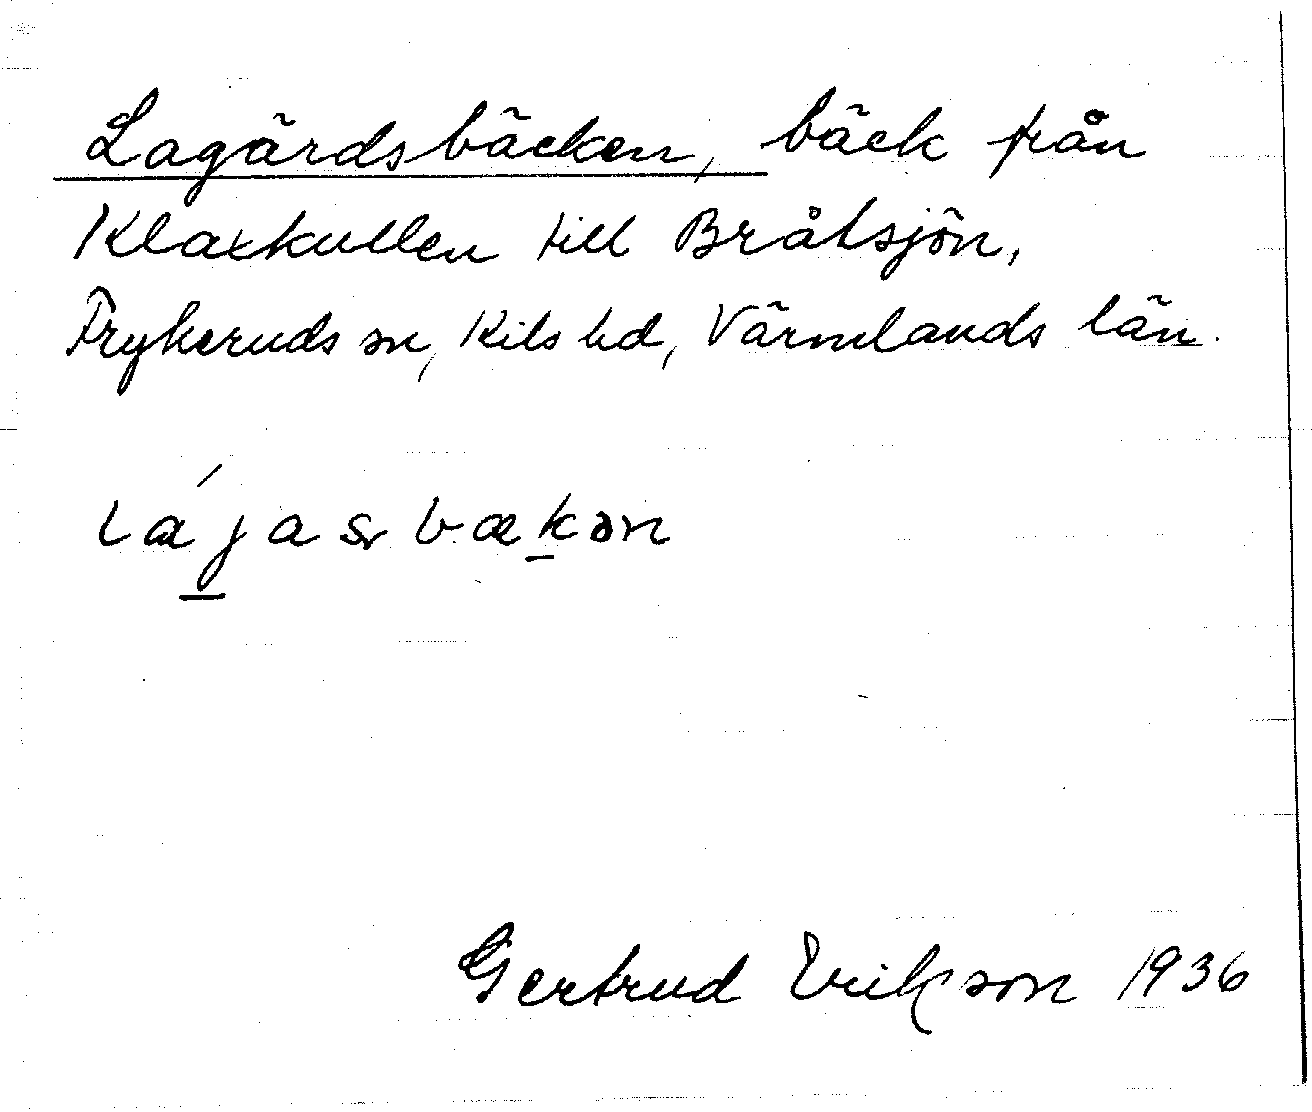 Lagårdsbäcken, bäck från
Klaxkullen till Bråtsjön,
Frykeruds sn, Kils hd, Värmlands län.
Gertrud Erikson 1936